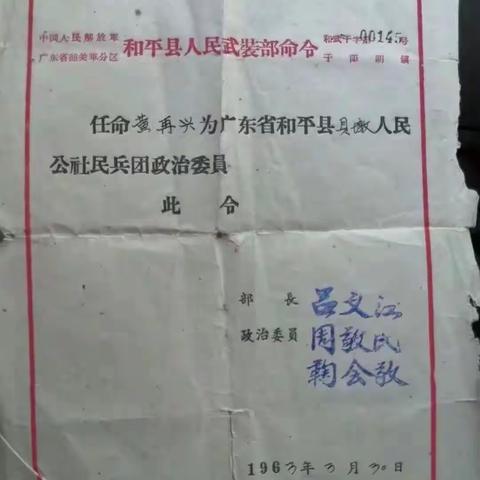 中国人民解放军
广东省韶关军分区
和平县人民武装部命令
和武干字第00145号
于 部 朝 镇
任命黄再兴为广东省和平县贝墩人民
公社民兵团政治委員
此 令
部 長 吕文江
政治委員 周敬民
鞠会敬
1963年3月30日